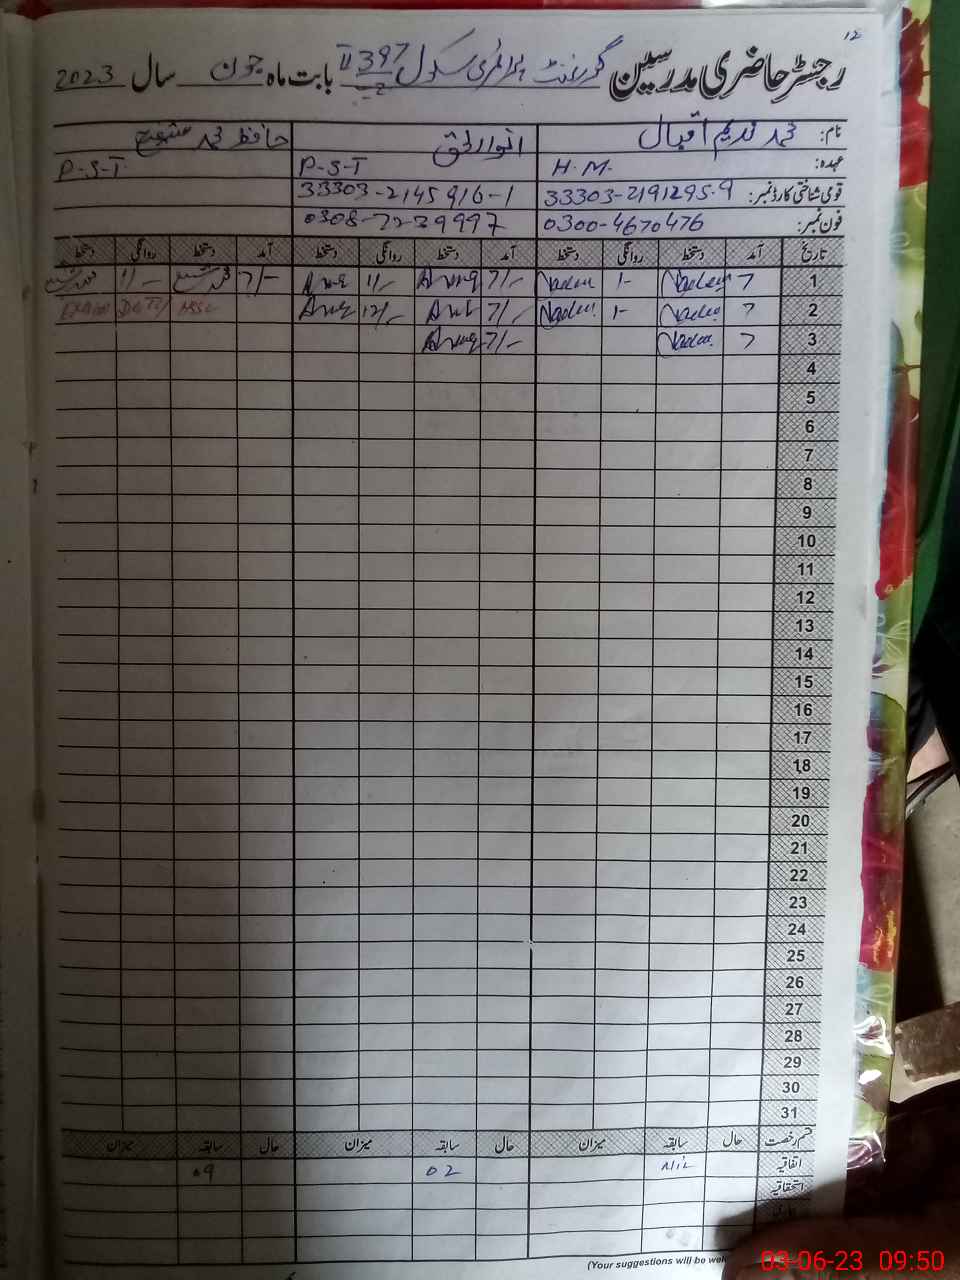 12
رجسٹر حاضری مدرسین گورنمنٹ پرائمری سکول 397 بابت ماہ جون سال 2023
نام: محمد ندیم اقبال انوارالحق حافظ محمد شفیع
عہدہ: H.M. P-S-T P-S-T
قومی شناختی کارڈ نمبر: 33303-2191295-9 33303-2145916-1
فون نمبر: 0300-4670476 0308-7239997
تاریخ آمد دستخط روانگی دستخط آمد دستخط روانگی دستخط آمد دستخط روانگی دستخط
1 7 Nadeem 1- Nadeem 7/- Anwq 11/- Anwq 7/- 11/-
2 7 Nadeem 1- Nadeem 7/- Anwq 12/- Anwq
3 7 Nadeem 7/- Anwq
4
5
6
7
8
9
10
11
12
13
14
15
16
17
18
19
20
21
22
23
24
25
26
27
28
29
30
31
قسم رخصت حال سابقہ میزان حال سابقہ میزان حال سابقہ میزان
اتفاقیہ Nil 02 09
استحقاقیہ
(Your suggestions will be wel
03-06-23 09:50